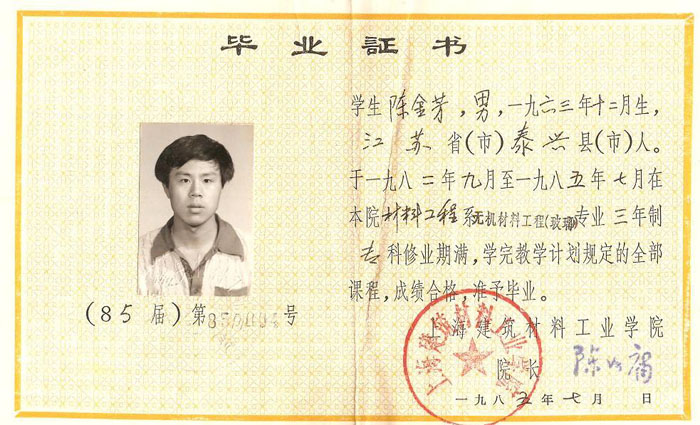 毕业証书
学生陈金芳，男，一九六三年十二月生，
江苏省(市)泰兴县(市)人。
于一九八二年九月至一九八五年七月在
本院材料工程系无机材料工程(玻璃)专业三年制
专科修业期满，学完教学计划规定的全部
课程，成绩合格，准予毕业。
上海建筑材料工业学院
院长
一九八五年七月 日
(85届)第 号
上海建筑材料工业学院